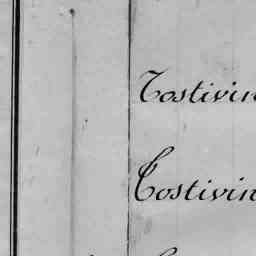 Tostivin
Tostivin